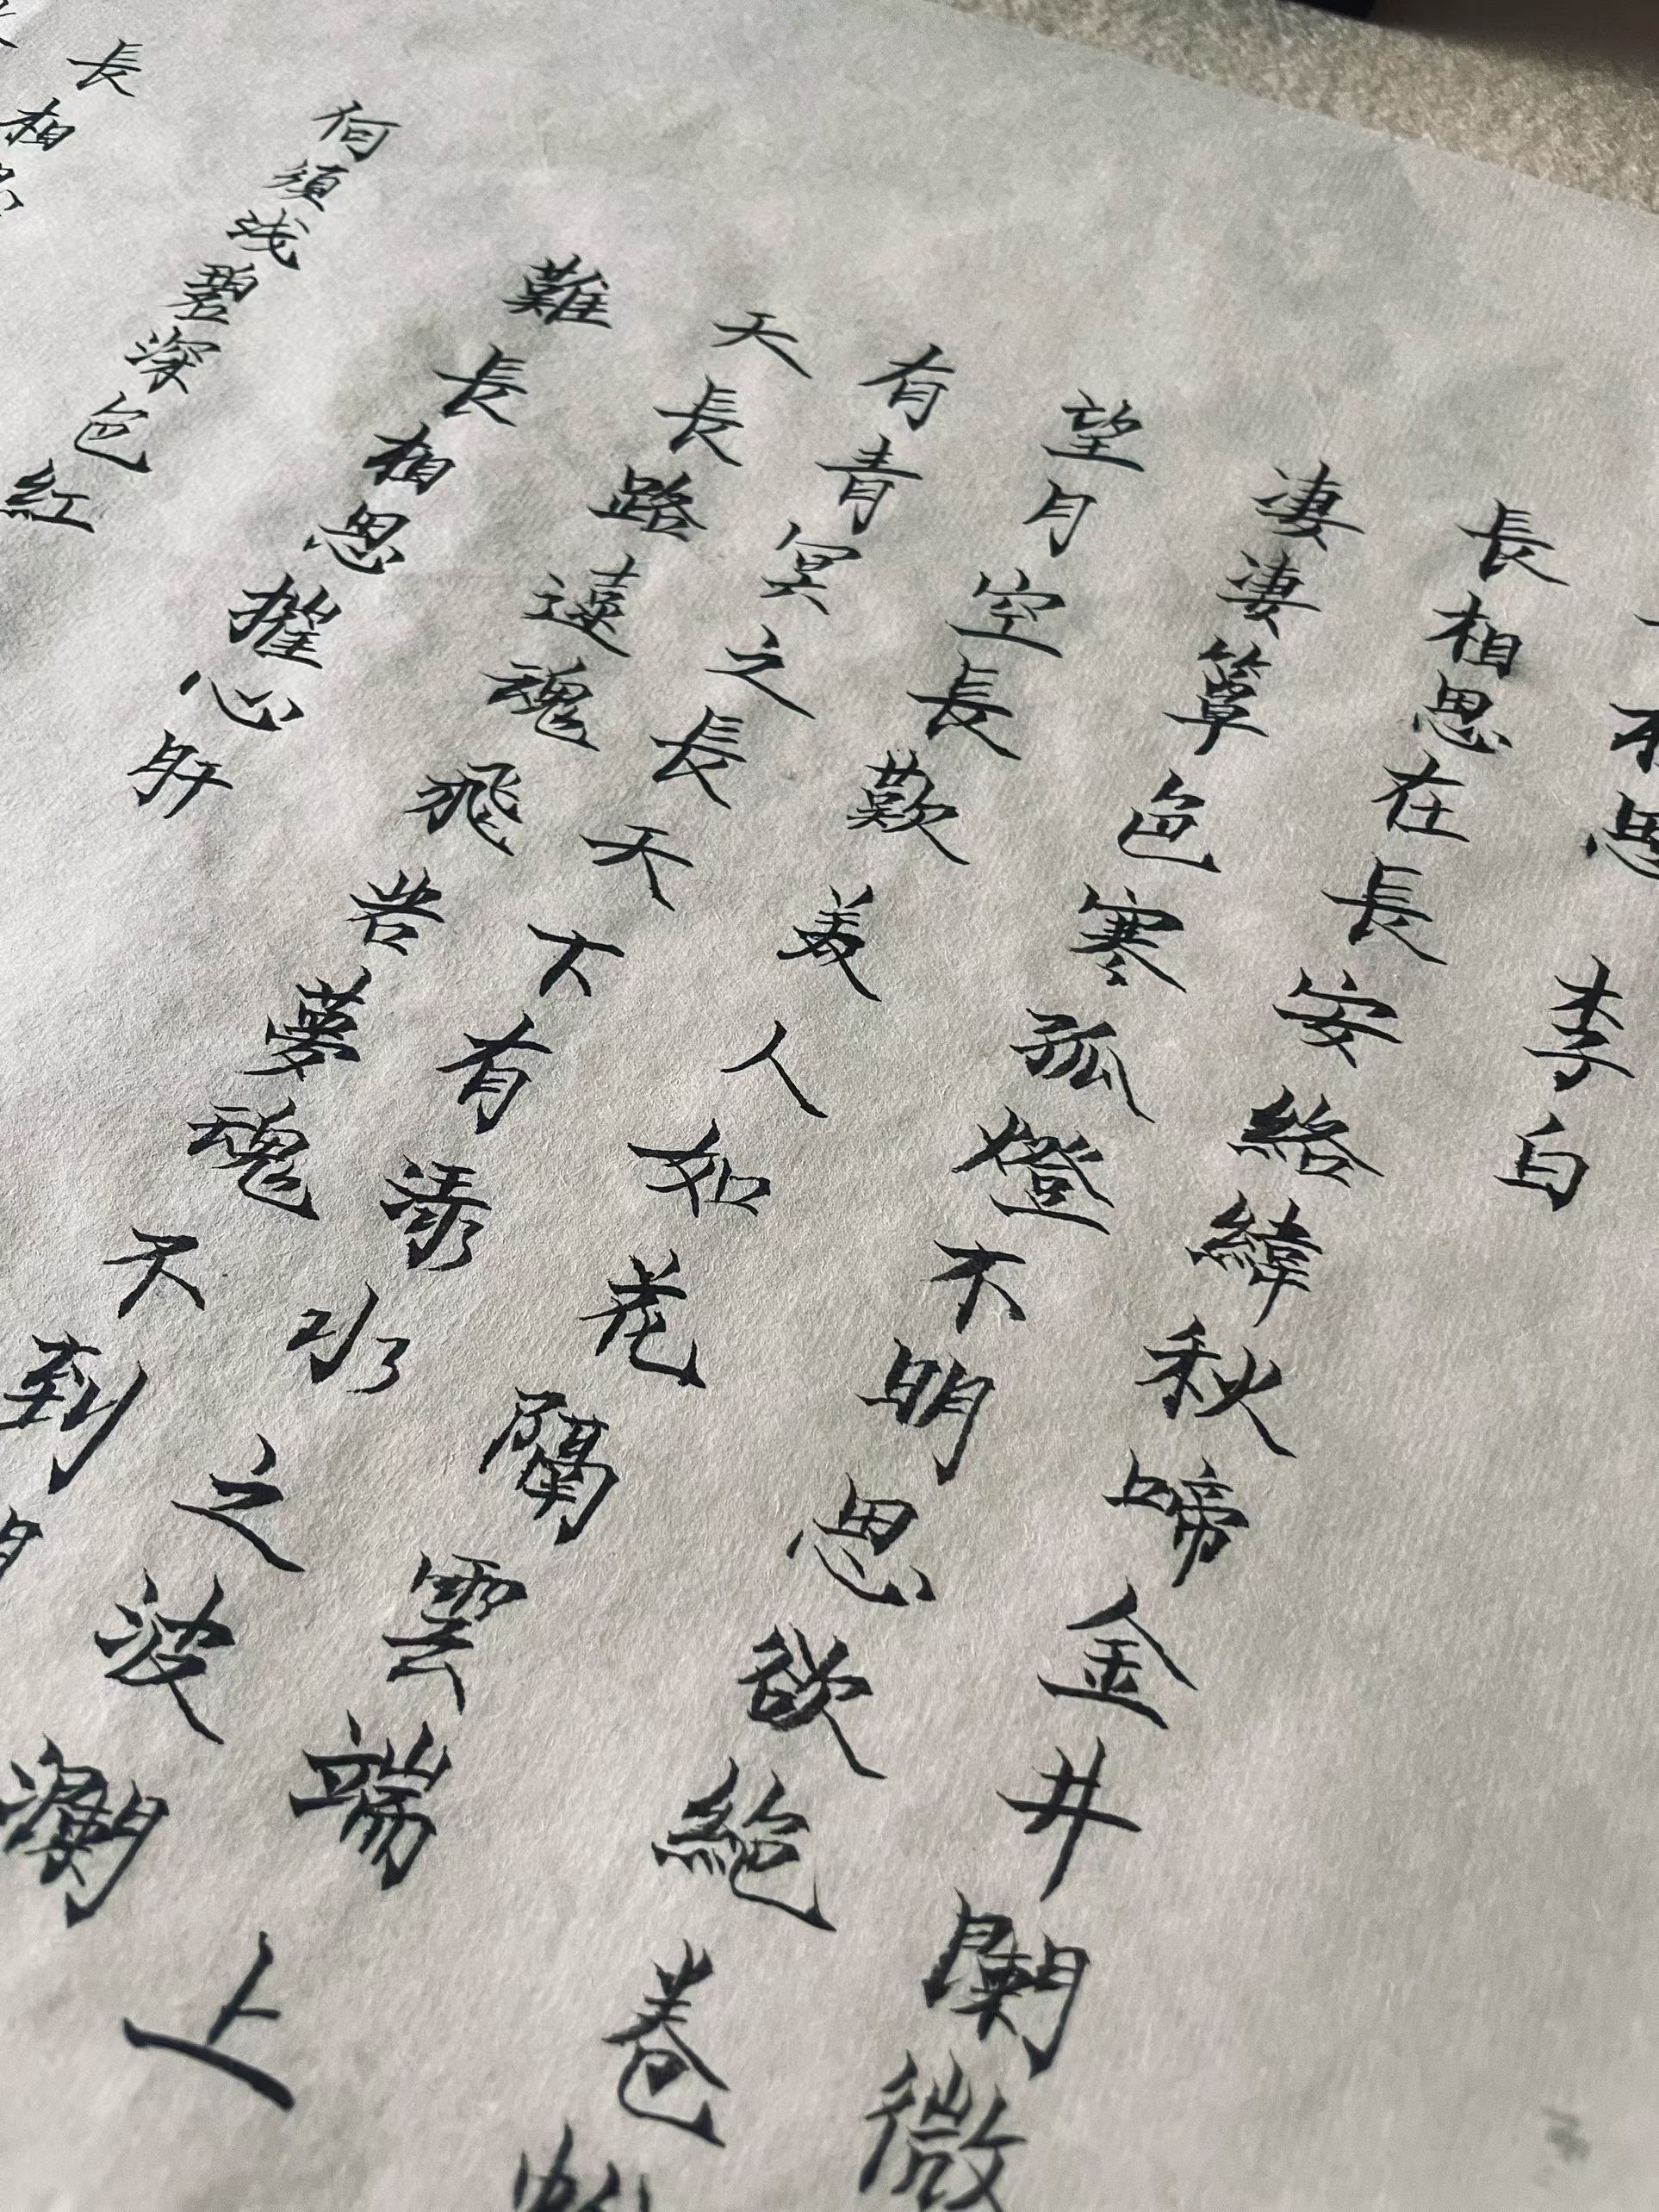 相思 李白
長相思在長安絡緯秋啼金井闌微
凄凄簟色寒孤燈不明思欲絕卷帷
望月空長歎美人如花隔雲端上
有青冥之長天下有淥水之波瀾
天長路遠魂飛苦夢魂不到
難長相思摧心肝
何須浅碧深色紅
長相思